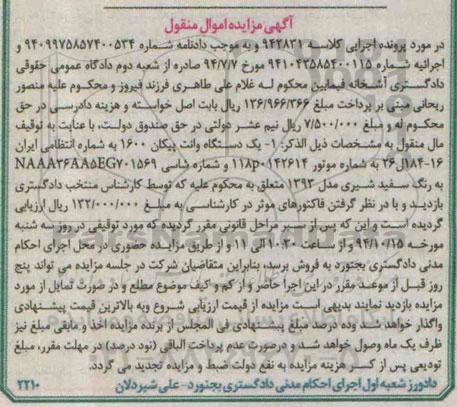 آگهی مزایده اموال منقول
در مورد پرونده اجرایی کلاسه ۹۴۲۸۳۱ و به موجب دادنامه شماره ۹۴۰۹۹۷۵۸۵۷۴۰۰۵۳۴ و
اجرائیه شماره ۹۴۱۰۴۳۵۸۵۴۰۰۱۱۵ مورخ ۹۴/۷/۷ صادره از شعبه دوم دادگاه عمومی حقوقی
دادگستری آشخانه فیمابین محکوم له غلام علی طاهری فرزند فیروز و محکوم علیه منصور
ریحانی مبنی بر پرداخت مبلغ ۱۳۶/۹۶۶/۳۶۶ ریال بابت اصل خواسته و هزینه دادرسی در حق
محکوم له و مبلغ ۷/۵۰۰/۰۰۰ ریال نیم عشر دولتی در حق صندوق دولت، با عنایت به توقیف
مال منقول به مشخصات ذیل الذکر: ۱- یک دستگاه وانت پیکان ۱۶۰۰ به شماره انتظامی ایران
۱۶-۱۸۴ل۲۶ به شماره موتور ۱۱۸p۰۱۴۲۶۱۴ و شماره شاسی NAAA۳۶AA۵EG۷۰۱۵۶۹
به رنگ سفید شیری مدل ۱۳۹۳ متعلق به محکوم علیه که توسط کارشناس منتخب دادگستری
بازدید و با در نظر گرفتن فاکتورهای موثر در کارشناسی به مبلغ ۱۳۲/۰۰۰/۰۰۰ ریال ارزیابی
گردیده است و این که پس از سیر مراحل قانونی مقرر گردیده که مورد توقیفی در روز سه شنبه
مورخه ۹۴/۱۰/۱۵ و از ساعت ۱۰:۳۰ الی ۱۱ و از طریق مزایده حضوری در محل اجرای احکام
مدنی دادگستری بجنورد به فروش برسد، بنابراین متقاضیان شرکت در جلسه مزایده می تواند پنج
روز قبل از موعد مقرر در این اجرا حاضر و از کم و کیف موضوع مطلع و در صورت تمایل از مورد
مزایده بازدید نمایند بدیهی است مزایده از قیمت ارزیابی شروع وبه بالاترین قیمت پیشنهادی
واگذار خواهد شد وده درصد مبلغ پیشنهادی فی المجلس از برنده مزایده اخذ و مابقی مبلغ نیز
ظرف یک ماه وصول خواهد شد و درصورت عدم پرداخت الباقی (نود درصد) در مهلت مقرر، مبلغ
تودیعی پس از کسر هزینه مزایده به نفع دولت ضبط و مزایده تجدید می گردد.
دادورز شعبه اول اجرای احکام مدنی دادگستری بجنورد- علی شیردلان
۲۲۱۰